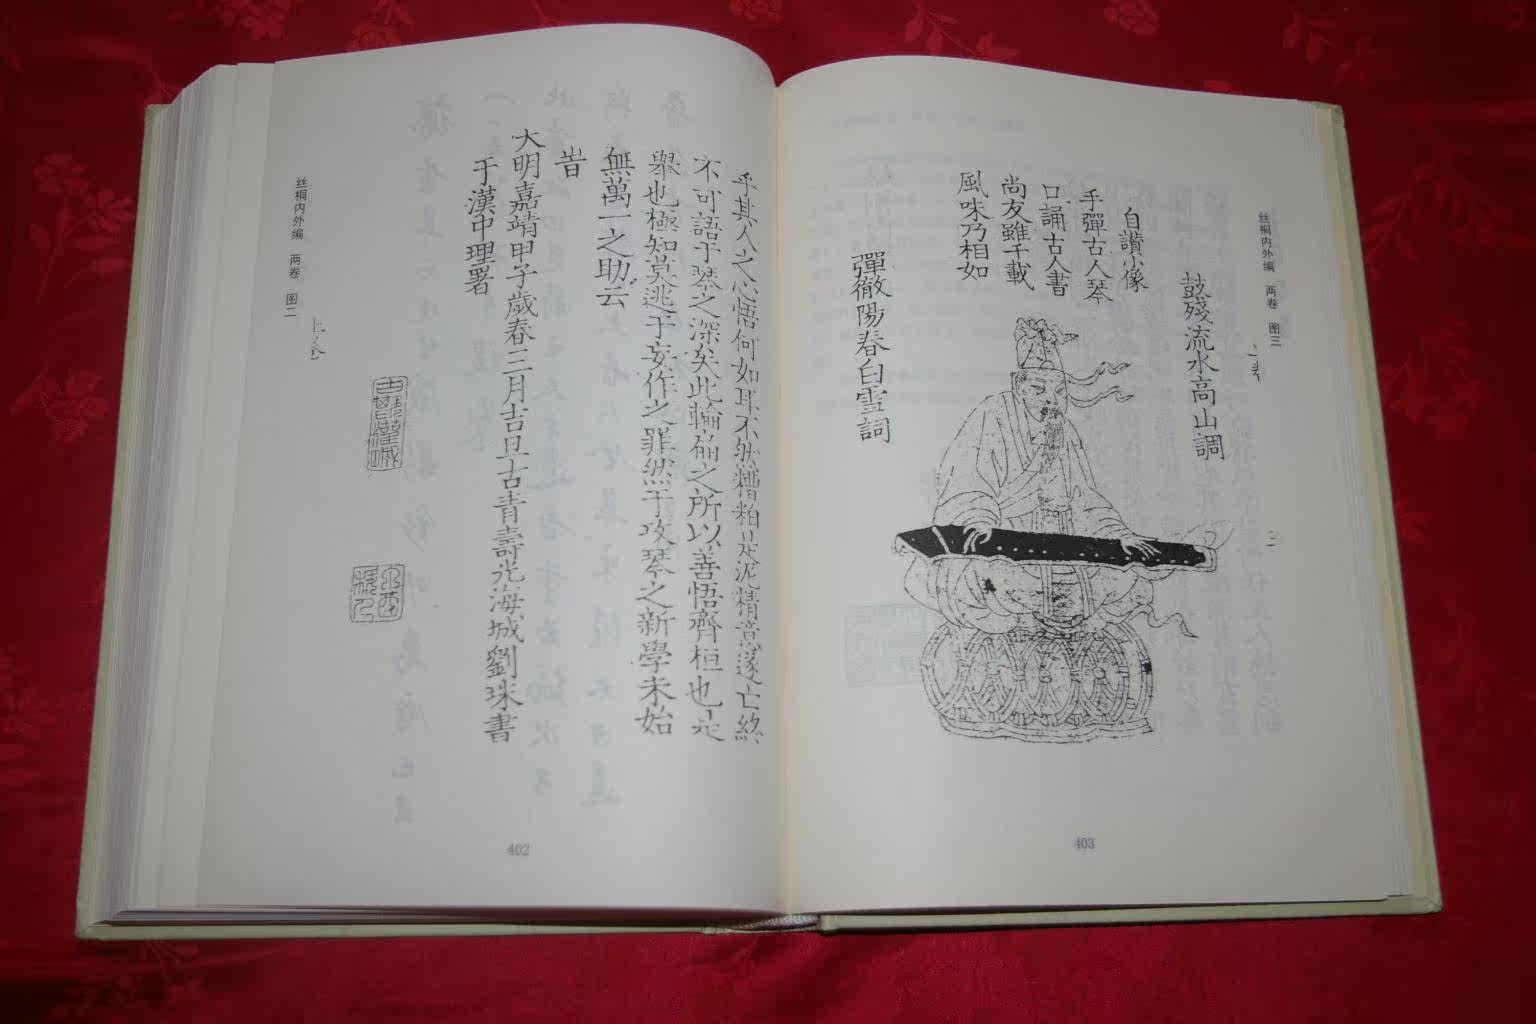 乎其人之心悟何如耳不然糟粕是泥精意遂亡終
不可語于琴之深矣此輪扁之所以善悟齊桓也是
舉也極知莫逃于妄作之罪然于攻琴之新學未始
無萬一之助云
旹
大明嘉靖甲子歲春三月吉旦古青壽光海城劉珠書
于漢中理署
丝桐内外编 两卷 图二
上卷
402
丝桐内外编 两卷 图三
鼓殘流水高山調
自讚小像
手彈古人琴
口誦古人書
尚友雖千載
風味乃相如
彈徹陽春白雪詞
403